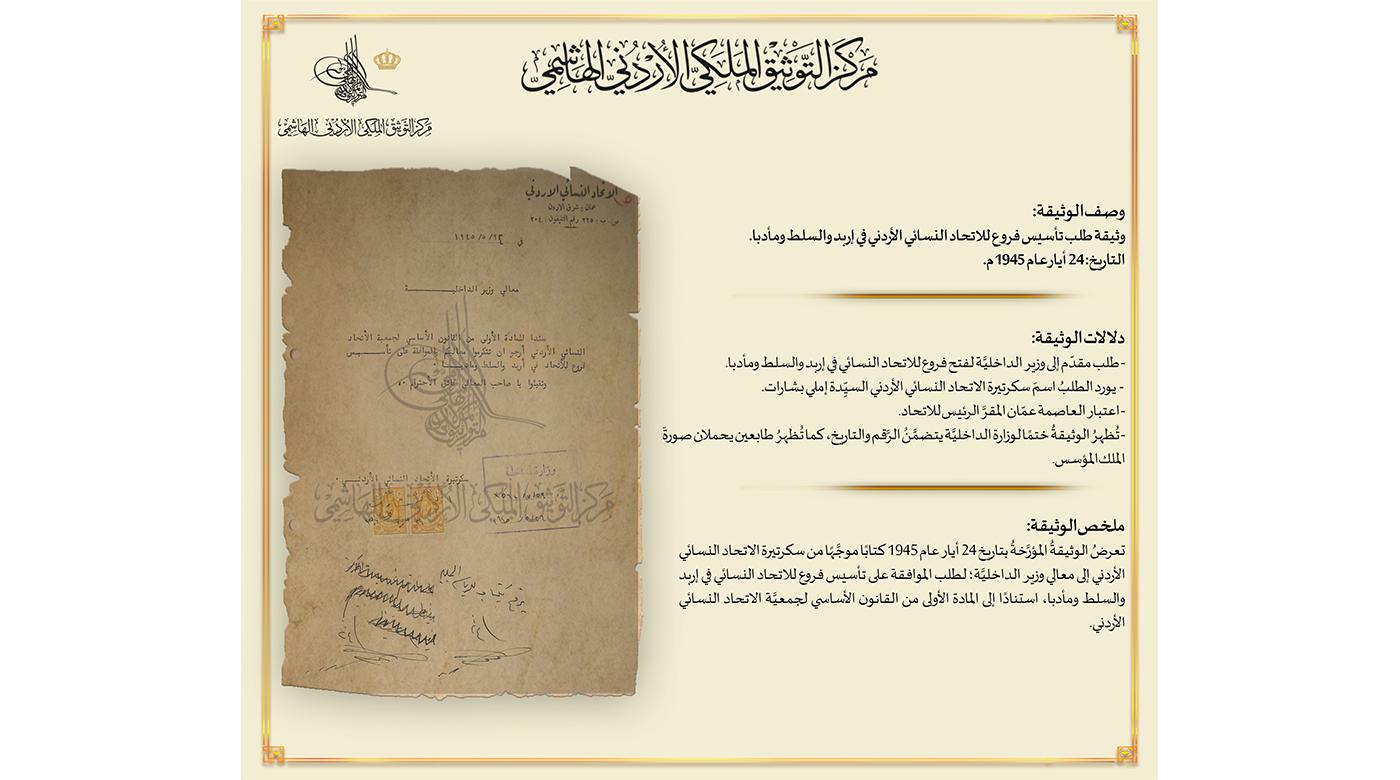 مركز التوثيق الملكي الأردني الهاشمي
مركز التوثيق الملكي الأردني الهاشمي
وصف الوثيقة:
وثيقة طلب تأسيس فروع للاتحاد النسائي الأردني في إربد والسلط ومأدبا.
التاريخ: 24 أيار عام 1945 م.
دلالات الوثيقة:
- طلب مقدّم إلى وزير الداخليَّة لفتح فروع للاتحاد النسائي في إربد والسلط ومأدبا.
- يورد الطلبُ اسمَ سكرتيرة الاتحاد النسائي الأردني السيِّدة إملي بشارات.
- اعتبار العاصمة عمّان المقرَّ الرئيس للاتحاد.
- تُظهرُ الوثيقةُ ختمًا لوزارة الداخليَّة يتضمَّنُ الرَّقم والتاريخ، كما تُظهرُ طابعين يحملان صورةَ
الملك المؤسس.
ملخص الوثيقة:
تعرضُ الوثيقةُ المؤرَّخةُ بتاريخ 24 أيار عام 1945 كتابًا موجَّهًا من سكرتيرة الاتحاد النسائي
الأردني إلى معالي وزير الداخليَّة؛ لطلب الموافقة على تأسيس فروع للاتحاد النسائي في إربد
والسلط ومأدبا، استنادًا إلى المادة الأولى من القانون الأساسي لجمعيَّة الاتحاد النسائي
الأردني.
الاتحاد النسائي الاردني
عمان : شرق الاردن
ص . ب : ٢٢٥ رقم التليفون ٢٠٤
في ١٩٤٥/٥/٢٤
معالي وزير الداخليـــــة
سندا للمادة الأولى من القانون الأساسي لجمعية الأتحاد
النسائي الأردني أرجو ان تتكرموا معاليكم بالموافقة على تأسيس
فروع للأتحاد في أربد والسلط ومادبا .
وتفضلوا يا صاحب المعالي فائق الأحترام ،،
وزارة الداخلية
سكرتيرة الأتحاد النسائي الأردني .
مركز التوثيق الملكي الأردني الهاشمي